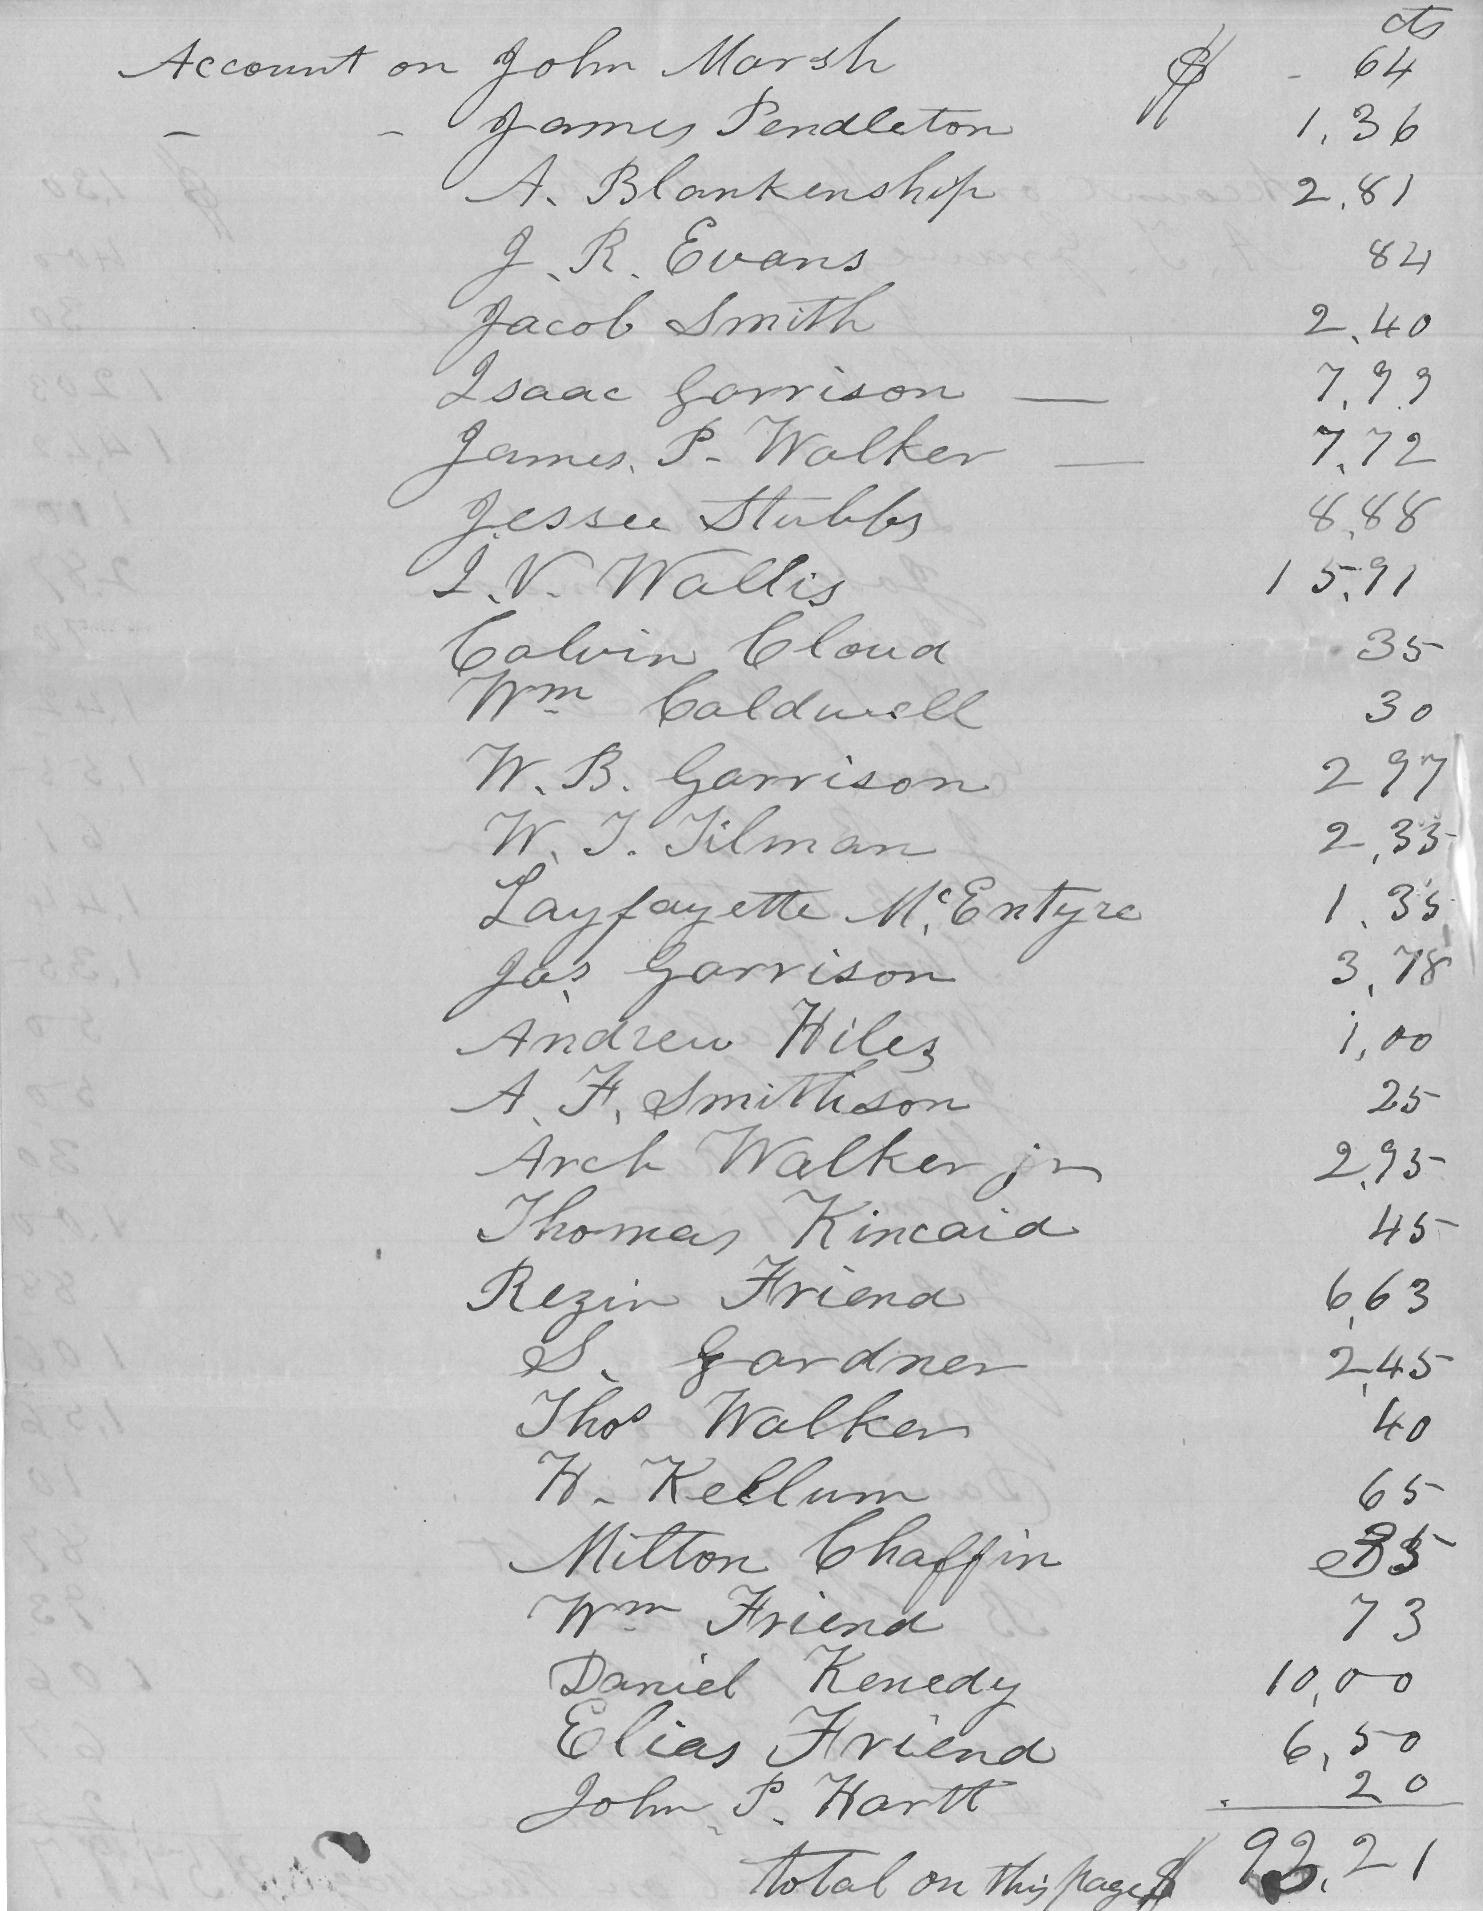 cts
Account on John Marsh $ - 64
– – James Pendleton 1,36
A. Blankenship 2,81
J. R. Evans 84
Jacob Smith 2,40
Isaac Garrison — 7,99
James, P. Walker — 7,72
Jessee Stubbs 8,88
I. V. Wallis 15,91
Calvin Cloud 35
Wm Caldwell 30
W. B. Garrison 2 97
W. T. Tilman 2,35
Layfayette McEntyre 1,35
Jas Garrison 3,78
Andrew Hiles 1,00
A. F. Smithson 25
Arch Walker jr 2,95
Thomas Kincaid 45
Rezin Friend 6,63
S. Gardner 2,45
Thos Walker 40
H. Kellum 65
Milton Chaffin
Wm Friend 73
Daniel Kenedy 10,00
Elias Friend 6,50
John P. Hartt 20
total on this page $ 92,21